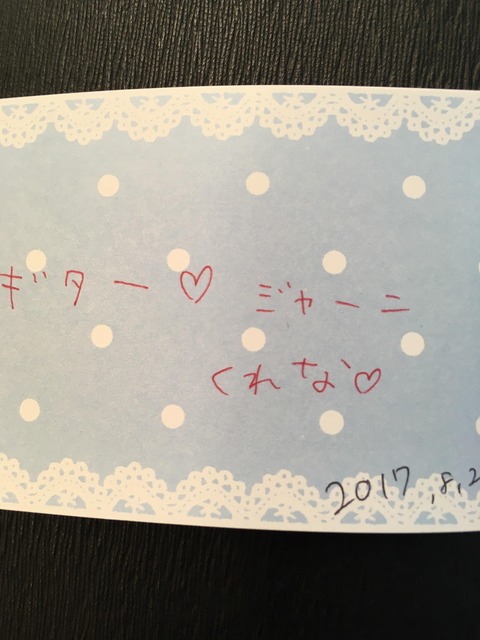 ギター♡ ジャーニ
くれな♡
2017.8.2